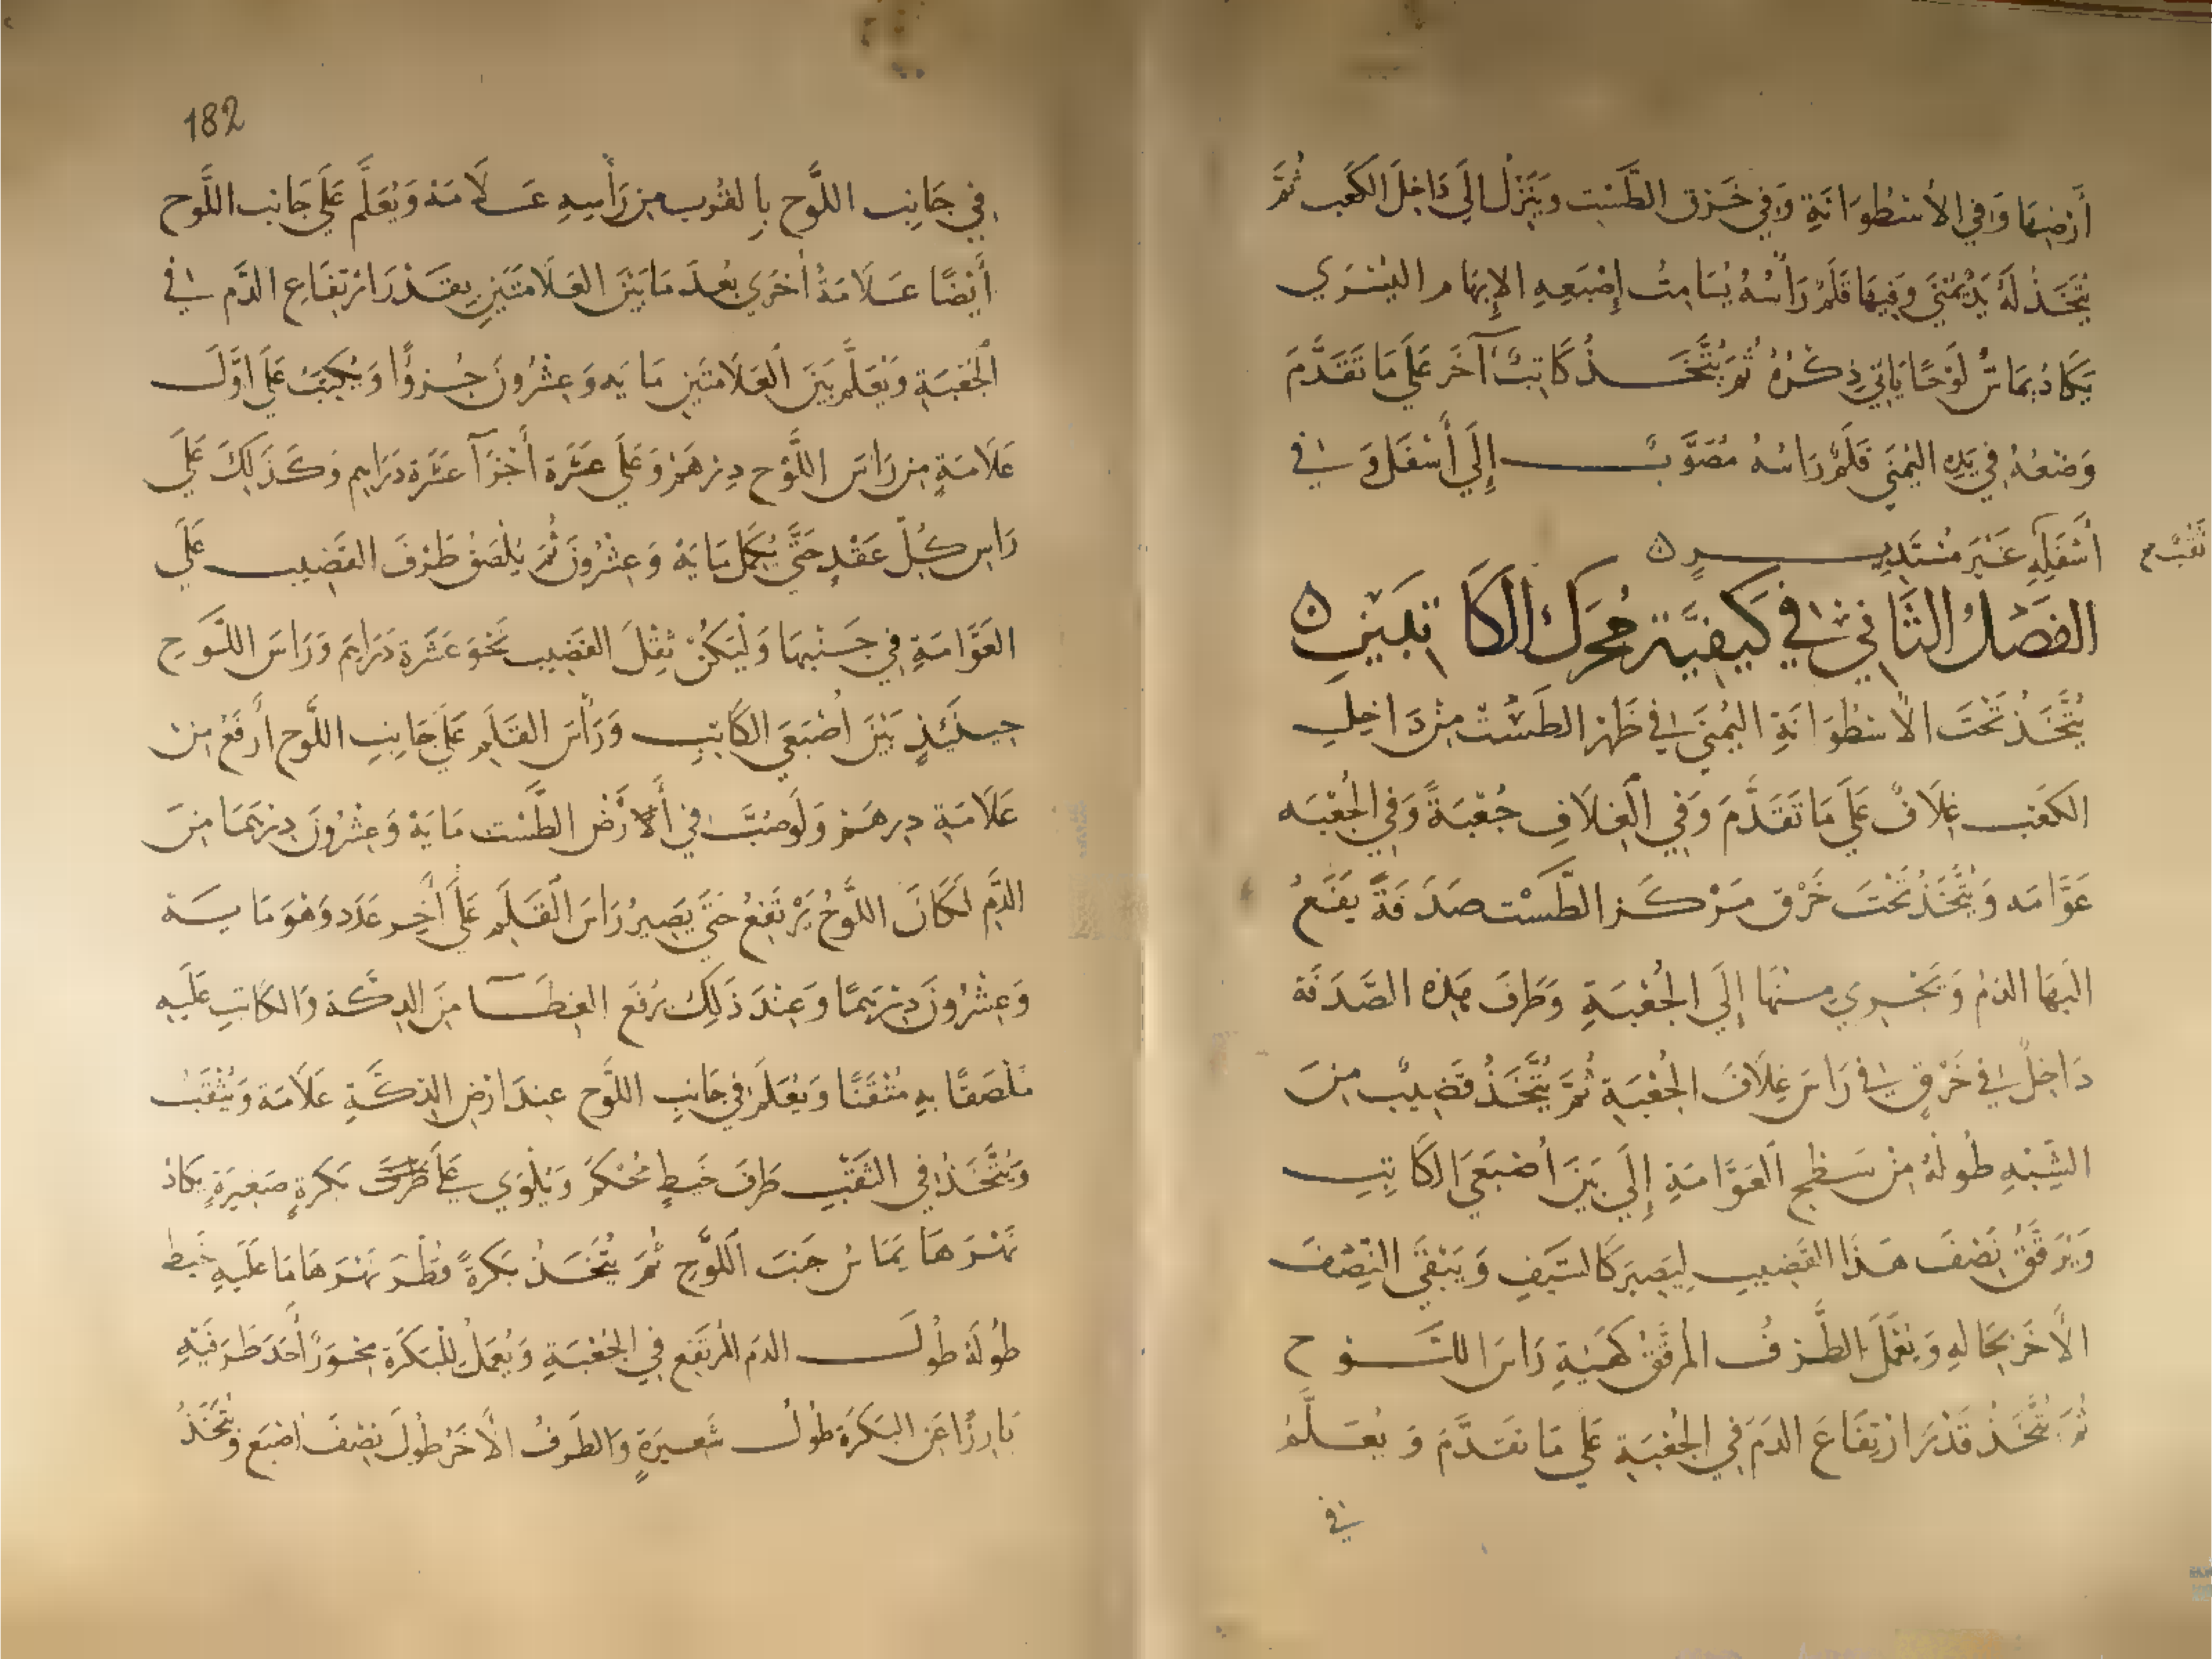 أَرْضِهَا وَفِي الأُسْطُوَانَةِ وَفِي خَرْقِ الطَّسْتِ وَيَنْزِلُ إِلَي دَاخِلِ الكَعْبِ ثُمَّ
يُتَّخَذُ لَهُ يَدٌ يُمْنَي وَفِيهَا قَلَمٌ رَأْسُهُ يُسَامِتُ إِصْبَعِهِ الإِبْهَام اليُسْرَي
يَكَادُ يُمَاسُّ لَوْحًا يَاتِي ذِكْرُهُ ثُمَّ يُتَّخَذُ كَاتِبٌ آخَرَ عَلَي مَا تَقَدَّمَ
وَضْعُهُ فِي يَدِهِ اليُمْنَي قَلَمٌ رَاسُهُ مُصَوَّبٌ إِلَي أَسْفَلَ وَفِي
أَسْفَلِهِ غَيْرَ مُسْتَدِيرٍ ه
ثَقْبٌ م
الفَصْلُ الثَّانِي فِي كَيْفِيَّة مُحَرِّك الكَاتِبَيْنِ ه
يُتَّخَذُ تَحْتَ الأُسْطُوَانَةِ اليُمْنَي فِي ظَهْرِ الطَسْتِ مِنْ دَاخِلِ
الكَعْبِ غِلَافٌ عَلَي مَا تَقَدَّمَ وَفِي الغِلَافِ جُعْبَةً وَفِي الجُعْبَه
عَوَّامَه وَيُتَّخَذُ تَحْتَ خَرْقِ مَرْكَزِ الطَّسْتِ صَدَفَةً يَقَعُ
إِلَيهَا الدَمُ وَيَجْرِي مِنْهَا إِلَي الجُعْبَةِ وَطَرَفَ هَذِهِ الصَّدَفَة
دَاخِلٌ فِي خَرْقٍ فِي رَاسِ غِلَافِ الجُعْبَةِ ثُمَّ يُتَّخَذُ قَضِيبٌ مِنَ
الشَّبَهِ طُولُهُ مِنْ سَطْحِ العَوَّامَةِ إِلَي بَيْنَ أُصْبَعَي الكَاتِبِ
وَيُرَقَّقُ نِصْفَ هَذَا القَضِيبِ لِيَصِيرَ كَالسَّيْفِ وَيَبْقَي النِصْفَ
الآخَرُ بِحَالِهِ وَيُعْمَلُ الطَّرْفُ المُرَقَّقُ كَهَيْئَةِ رَاسِ اللَّوْحِ
ثُمَّ يُتَّخَذُ قَدْرَ ارْتِفَاعَ الدَمَ فِي الجُعْبَةِ عَلَي مَا تَقَدَّمَ وَ يُعَلَّمُ
فِي
182
فِي جَانِبِ اللَّوْحِ بِالقُرْبِ مِن رَأْسِهِ عَلَامَة وَيُعَلَّمُ عَلَي جَانِبِ اللَّوْح
أَيْضًا عَلَامَةُ أُخْرَي بُعْدَ مَا بَيْنَ العَلَامَتَيْنِ بِقَدْرِ ارْتِفَاعِ الدَّمِ فِي
الجُعْبَةِ وَيُعَلَّمُ بَيْنَ العَلَامَتَيْنِ مَايَه وَعِشْرُونَ جُزْوًا وَيُكْتَبُ عَلَي أَوَّلَ
عَلَامَةٍ مِن رَاسِ اللَّوْحِ دِرْهَمْ وَعَلَي عَشْرَةِ أَجْزَآ عَشْرَةِ دَرَاهِم وَكَذَلِكَ عَلَي
رَاسِ كُلِّ عَقْدٍ حَتَّي يُكْمَلَ مَايَةُ وَعِشْرُونَ ثُمَّ يُلْصَقُ طَرْفَ القَضِيبِ عَلَي
العَوَّامَةِ فِي جَنْبِهَا وَلْيَكُنْ ثِقْلَ القَضِيبِ نَحْوَ عَشْرَةِ دَرَاهِم وَرَاسَ اللَّوْحِ
حِينَئِذٍ بَيْنَ أُصْبَعَي الكَاتِبِ وَرَأْسَ القَلَمِ عَلَي جَانِبِ اللَّوْحِ أَرْفَعُ مِنْ
عَلَامَةِ دِرهَمْ وَلَو صُبَّ فِي أَرْضِ الطَّسْتِ مَايَةُ وَعِشْرُونَ دِرْهَمًا مِنَ
الدَّمِ لَكَانَ اللَّوْحُ يَرْتَفِعُ حَتَّي يَصِيرُ رَاسَ القَلَمِ عَلَي أَخِرِ عَدَد وَهُوَ مَايِة
وَعِشْرُونَ دِرْهَمًا وَعِنْدَ ذَلِكَ يُرْفَع الغِطَآ مِنَ الدِكَّة وَالكَاتِبِ عَلَيهِ
مُلْصَقًا بِهِ مُتْقَنًا وَيُعَلَّمُ فِي جَانِبِ اللَّوْحِ عِندَ ارْضِ الدِكَّةِ عَلَامَة وَيُثْقَبُ
وَيُتَّخَذُ فِي الثَقْبِ طَرَفَ خَيطٍ مُحْكَمْ وَيُلْوَي عَلَي طَرَف بَكَرةٍ صَغِيرَةٍ يَكَادُ
نَهْرَهَا يُمَاسُ جَنْبَ اللَّوْحِ ثُمَّ يُتَّخَذُ بَكَرةً قُطْرَ نَهْرَهَا مَا عَلَيهِ خَيط
طُولُهُ طُولَ الدَمِ المُرتَفِعِ فِي الجُعْبَةِ وَيُعْمَلُ لِلْبَكَرَةِ مِحْوَرًا أَحَدَ طَرَفَيْهِ
بَارِزًا عَنِ البَكَرَةِ طُولُ شَعِيرَةٍ وَالطَرفُ الأَخَرْ طُولَ نِصْفَ أُصْبَع وَيُتَّخَذُ